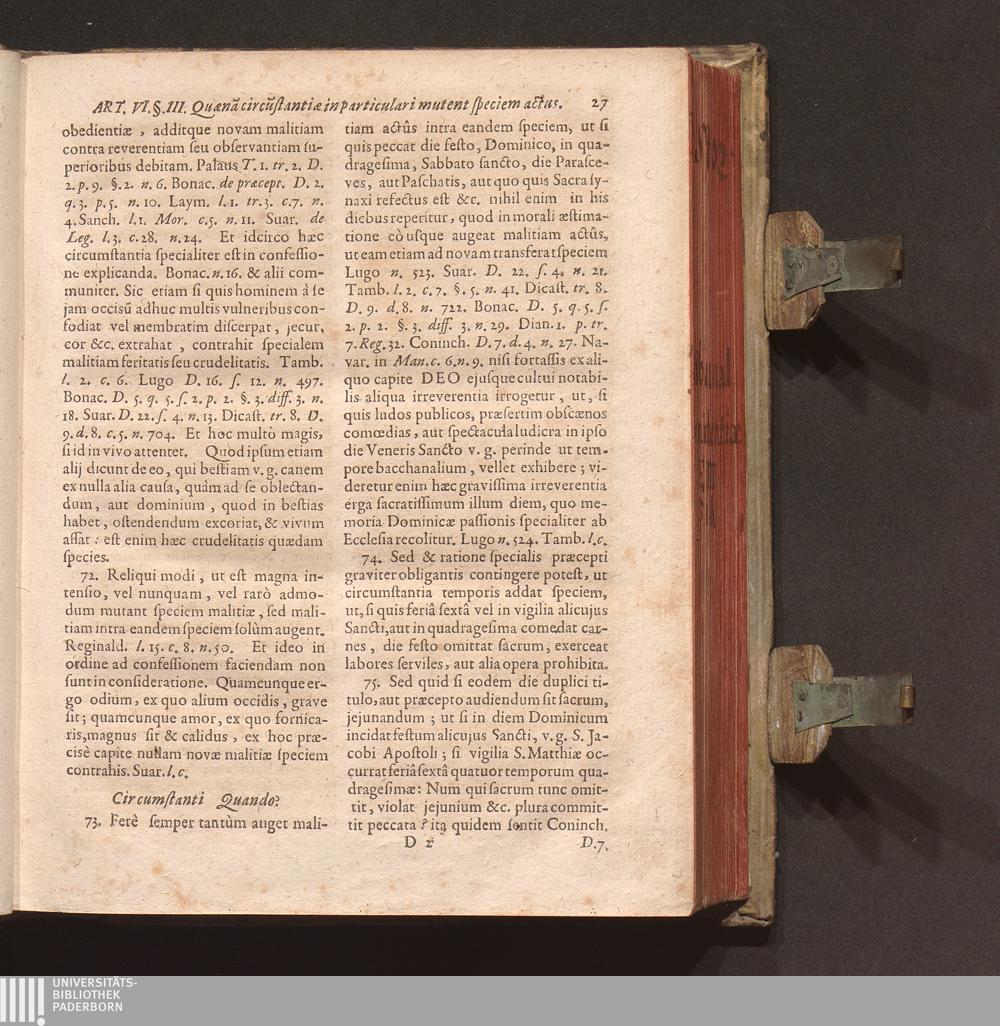 ART. VI. §. III. Quænã circũstantiæ in particulari mutent speciem actus. 27
obedientiæ, additque novam malitiam
contra reverentiam seu observantiam su-
perioribus debitam. Palaus T. 1. tr. 2. D.
2. p. 9. §. 2. n. 6. Bonac. de præcept. D. 2.
q. 3. p. 5. n. 10. Laym. l. 1. tr. 3. c. 7. n.
4. Sanch. l. 1. Mor. c. 5. n. 11. Suar. de
Leg. l. 3. c. 28. n. 24. Et idcirco hæc
circumstantia specialiter est in confessio-
ne explicanda. Bonac. n. 16. & alii com-
muniter. Sic etiam si quis hominem à se
jam occisũ adhuc multis vulneribus con-
fodiat vel membratim discerpat, jecur,
cor &c. extrahat, contrahit specialem
malitiam feritatis seu crudelitatis. Tamb.
l. 2. c. 6. Lugo D. 16. s. 12. n. 497.
Bonac. D. 5. q. 5. s. 2. p. 2. §. 3. diff. 3. n.
18. Suar. D. 22. s. 4. n. 13. Dicast. tr. 8. D.
9. d. 8. c. 5. n. 704. Et hoc multò magis,
si id in vivo attentet. Quod ipsum etiam
alij dicunt de eo, qui bestiam v. g. canem
ex nulla alia causa, quàm ad se oblectan-
dum, aut dominium, quod in bestias
habet, ostendendum excoriat, & vivum
assat: est enim hæc crudelitatis quædam
species.
72. Reliqui modi, ut est magna in-
tensio, vel nunquam, vel rarò admo-
dum mutant speciem malitiæ, sed mali-
tiam intra eandem speciem solùm augent.
Reginald. l. 15. c. 8. n. 50. Et ideo in
ordine ad confessionem faciendam non
sunt in consideratione. Quamcunque er-
go odium, ex quo alium occidis, grave
sit; quamcunque amor, ex quo fornica-
ris, magnus sit & calidus, ex hoc præ-
cisè capite nullam novæ malitiæ speciem
contrahis. Suar. l. c.
Circumstanti Quando?
73. Ferè semper tantùm auget mali-
tiam actûs intra eandem speciem, ut si
quis peccat die festo, Dominico, in qua-
dragesima, Sabbato sancto, die Parasce-
ves, aut Paschatis, aut quo quis Sacra sy-
naxi refectus est &c. nihil enim in his
diebus reperitur, quod in morali æstima-
tione eò usque augeat malitiam actûs,
ut eam etiam ad novam transferat speciem
Lugo n. 523. Suar. D. 22. s. 4. n. 21.
Tamb. l. 2. c. 7. §. 5. n. 41. Dicast. tr. 8.
D. 9. d. 8. n. 722. Bonac. D. 5. q. 5. s.
2. p. 2. §. 3. diff. 3. n. 29. Dian. 1. p. tr.
7. Reg. 32. Coninch. D. 7. d. 4. n. 27. Na-
var. in Man. c. 6. n. 9. nisi fortassis ex ali-
quo capite DEO ejusque cultui notabi-
lis aliqua irreverentia irrogetur, ut, si
quis ludos publicos, præsertim obscænos
comœdias, aut spectacula ludicra in ipso
die Veneris Sancto v. g. perinde ut tem-
pore bacchanalium, vellet exhibere; vi-
deretur enim hæc gravissima irreverentia
erga sacratissimum illum diem, quo me-
moria Dominicæ passionis specialiter ab
Ecclesia recolitur. Lugo n. 524. Tamb. l. c.
74. Sed & ratione specialis præcepti
graviter obligantis contingere potest, ut
circumstantia temporis addat speciem,
ut, si quis feriâ sextâ vel in vigilia alicujus
Sancti, aut in quadragesima comedat car-
nes, die festo omittat sacrum, exerceat
labores serviles, aut alia opera prohibita.
75. Sed quid si eodem die duplici ti-
tulo, aut præcepto audiendum sit sacrum,
jejunandum; ut si in diem Dominicum
incidat festum alicujus Sancti, v. g. S. Ja-
cobi Apostoli; si vigilia S. Matthiæ oc-
currat feriâ sextâ quatuor temporum qua-
dragesimæ: Num qui sacrum tunc omit-
tit, violat jejunium &c. plura commit-
tit peccata? ita quidem sentit Coninch.
D 2 D. 7.
UNIVERSITÄTS-
BIBLIOTHEK
PADERBORN